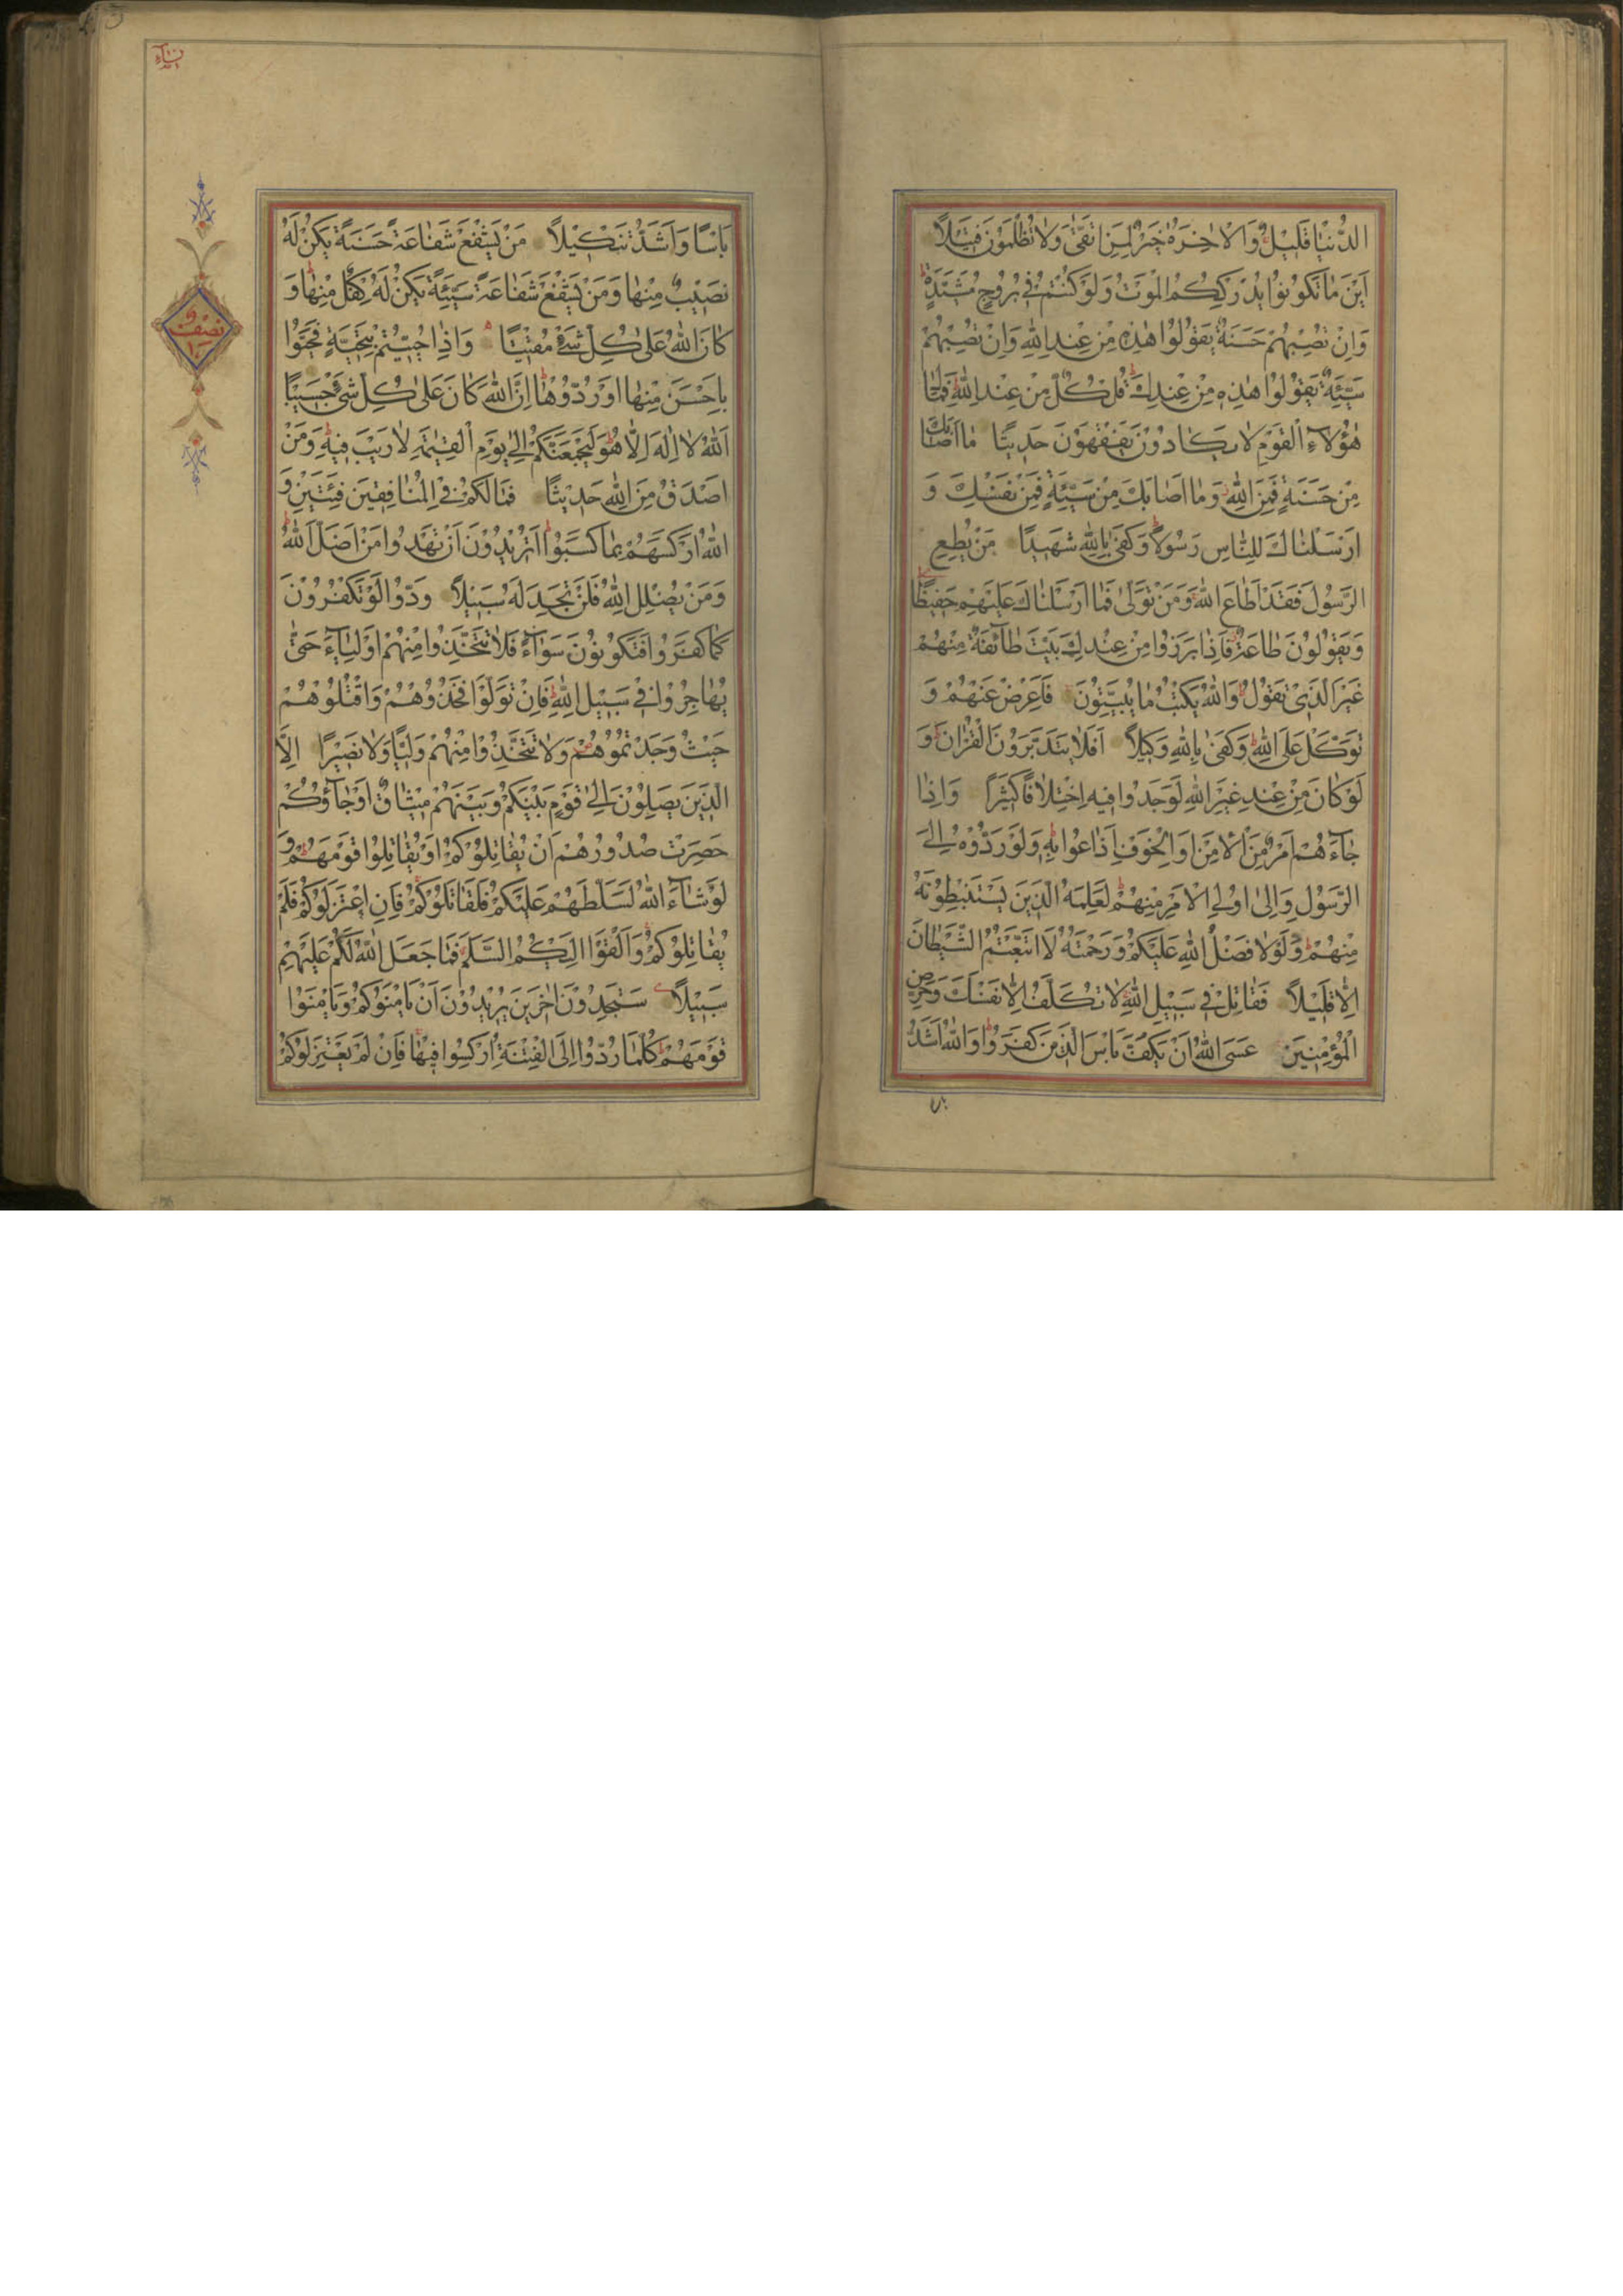 الدُّنْيَا قَلِيلٌ وَالْاٰخِرَةُ خَيْرٌ لِمَنِ اتَّقَىٰ وَلَا تُظْلَمُونَ فَتِيلًا
اَيْنَ مَا تَكُونُوا يُدْرِكْكُمُ الْمَوْتُ وَلَوْ كُنْتُمْ فِي بُرُوجٍ مُشَيَّدَةٍ
وَاِنْ تُصِبْهُمْ حَسَنَةٌ يَقُولُوا هٰذِهِ مِنْ عِنْدِ اللّٰهِ وَاِنْ تُصِبْهُمْ
سَيِّئَةٌ يَقُولُوا هٰذِهِ مِنْ عِنْدِكَ قُلْ كُلٌّ مِنْ عِنْدِ اللّٰهِ فَمَا لِ
هٰؤُلَآءِ الْقَوْمِ لَا يَكَادُونَ يَفْقَهُونَ حَدِيثًا مَا اَصَابَكَ
مِنْ حَسَنَةٍ فَمِنَ اللّٰهِ وَمَا اَصَابَكَ مِنْ سَيِّئَةٍ فَمِنْ نَفْسِكَ وَ
اَرْسَلْنَاكَ لِلنَّاسِ رَسُولًا وَكَفَىٰ بِاللّٰهِ شَهِيدًا مَنْ يُطِعِ
الرَّسُولَ فَقَدْ اَطَاعَ اللّٰهَ وَمَنْ تَوَلَّىٰ فَمَا اَرْسَلْنَاكَ عَلَيْهِمْ حَفِيظًا
وَيَقُولُونَ طَاعَةٌ فَاِذَا بَرَزُوا مِنْ عِنْدِكَ بَيَّتَ طَآئِفَةٌ مِنْهُمْ
غَيْرَ الَّذِي تَقُولُ وَاللّٰهُ يَكْتُبُ مَا يُبَيِّتُونَ فَاَعْرِضْ عَنْهُمْ وَ
تَوَكَّلْ عَلَى اللّٰهِ وَكَفَىٰ بِاللّٰهِ وَكِيلًا اَفَلَا يَتَدَبَّرُونَ الْقُرْاٰنَ وَ
لَوْ كَانَ مِنْ عِنْدِ غَيْرِ اللّٰهِ لَوَجَدُوا فِيهِ اخْتِلَافًا كَثِيرًا وَاِذَا
جَآءَهُمْ اَمْرٌ مِنَ الْاَمْنِ اَوِ الْخَوْفِ اَذَاعُوا بِهِ وَلَوْ رَدُّوهُ اِلَى
الرَّسُولِ وَاِلَىٰ اُولِي الْاَمْرِ مِنْهُمْ لَعَلِمَهُ الَّذِينَ يَسْتَنْبِطُونَهُ
مِنْهُمْ وَلَوْلَا فَضْلُ اللّٰهِ عَلَيْكُمْ وَرَحْمَتُهُ لَاتَّبَعْتُمُ الشَّيْطَانَ
اِلَّا قَلِيلًا فَقَاتِلْ فِي سَبِيلِ اللّٰهِ لَا تُكَلَّفُ اِلَّا نَفْسَكَ وَحَرِّضِ
الْمُؤْمِنِينَ عَسَى اللّٰهُ اَنْ يَكُفَّ بَاْسَ الَّذِينَ كَفَرُوا وَاللّٰهُ اَشَدُّ
نساء
نصف
بَاْسًا وَاَشَدُّ تَنْكِيلًا مَنْ يَشْفَعْ شَفَاعَةً حَسَنَةً يَكُنْ لَهُ
نَصِيبٌ مِنْهَا وَمَنْ يَشْفَعْ شَفَاعَةً سَيِّئَةً يَكُنْ لَهُ كِفْلٌ مِنْهَا وَ
كَانَ اللّٰهُ عَلَىٰ كُلِّ شَيْءٍ مُقِيتًا وَاِذَا حُيِّيتُمْ بِتَحِيَّةٍ فَحَيُّوا
بِاَحْسَنَ مِنْهَا اَوْ رُدُّوهَا اِنَّ اللّٰهَ كَانَ عَلَىٰ كُلِّ شَيْءٍ حَسِيبًا
اَللّٰهُ لَا اِلٰهَ اِلَّا هُوَ لَيَجْمَعَنَّكُمْ اِلَىٰ يَوْمِ الْقِيٰمَةِ لَا رَيْبَ فِيهِ وَمَنْ
اَصْدَقُ مِنَ اللّٰهِ حَدِيثًا فَمَا لَكُمْ فِي الْمُنَافِقِينَ فِئَتَيْنِ وَ
اللّٰهُ اَرْكَسَهُمْ بِمَا كَسَبُوا اَتُرِيدُونَ اَنْ تَهْدُوا مَنْ اَضَلَّ اللّٰهُ
وَمَنْ يُضْلِلِ اللّٰهُ فَلَنْ تَجِدَ لَهُ سَبِيلًا وَدُّوا لَوْ تَكْفُرُونَ
كَمَا كَفَرُوا فَتَكُونُونَ سَوَآءً فَلَا تَتَّخِذُوا مِنْهُمْ اَوْلِيَآءَ حَتَّىٰ
يُهَاجِرُوا فِي سَبِيلِ اللّٰهِ فَاِنْ تَوَلَّوْا فَخُذُوهُمْ وَاقْتُلُوهُمْ
حَيْثُ وَجَدْتُمُوهُمْ وَلَا تَتَّخِذُوا مِنْهُمْ وَلِيًّا وَلَا نَصِيرًا اِلَّا
الَّذِينَ يَصِلُونَ اِلَىٰ قَوْمٍ بَيْنَكُمْ وَبَيْنَهُمْ مِيثَاقٌ اَوْ جَآؤُكُمْ
حَصِرَتْ صُدُورُهُمْ اَنْ يُقَاتِلُوكُمْ اَوْ يُقَاتِلُوا قَوْمَهُمْ وَ
لَوْ شَآءَ اللّٰهُ لَسَلَّطَهُمْ عَلَيْكُمْ فَلَقَاتَلُوكُمْ فَاِنِ اعْتَزَلُوكُمْ فَلَمْ
يُقَاتِلُوكُمْ وَاَلْقَوْا اِلَيْكُمُ السَّلَمَ فَمَا جَعَلَ اللّٰهُ لَكُمْ عَلَيْهِمْ
سَبِيلًا سَتَجِدُونَ اٰخَرِينَ يُرِيدُونَ اَنْ يَاْمَنُوكُمْ وَيَاْمَنُوا
قَوْمَهُمْ كُلَّمَا رُدُّوا اِلَى الْفِتْنَةِ اُرْكِسُوا فِيهَا فَاِنْ لَمْ يَعْتَزِلُوكُمْ